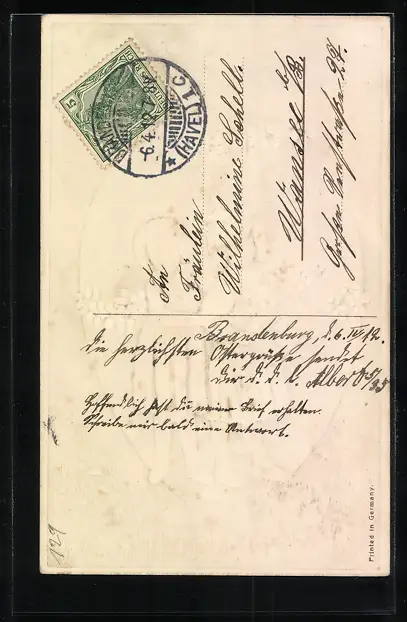 5
BRANDENBURG
(HAVEL)
-6.4.12.7-8
C 1
An
Fräulein
Wilhelmine Schell.
Wansee b/B.
Große 27.
Brandenburg, d. 6. IV 12.
Die herzlichsten Ostergrüße sendet
Dir d. d. l. Albert
Hoffentlich hast du meinen Brief erhalten.
Schreibe mir bald eine Antwort.
129
Printed in Germany.